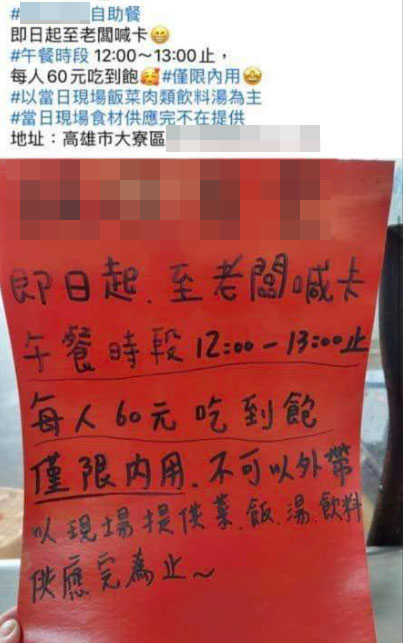 #自助餐
即日起至老闆喊卡😁
#午餐時段 12:00～13:00止，
每人60元吃到飽🥰#僅限內用🤩
#以當日現場飯菜肉類飲料湯為主
#當日現場食材供應完不在提供
地址：高雄市大寮區
即日起.至老闆喊卡
午餐時段12:00-13:00止
每人60元吃到飽
僅限內用.不可以外帶
以現場提供菜.飯.湯.飲料
供應完為止~